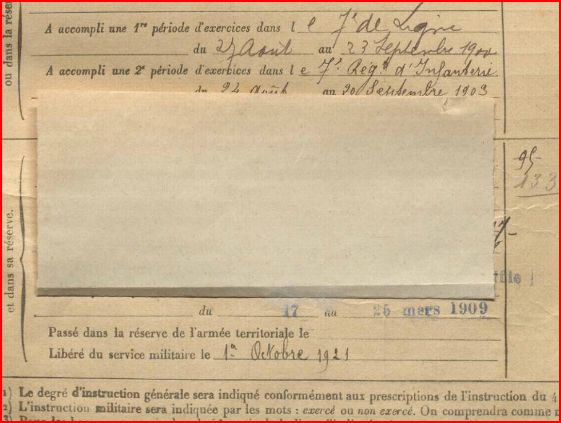 ou dans la réserve
A accompli une 1re période d'exercices dans l e 7e de Ligne
du 27 Août au 23 Septembre 1900
A accompli une 2e période d'exercices dans l e 7e Régt d'Infanterie
du 24 Août au 20 Septembre 1903
95
133
et dans sa réserve.
du 17 au 25 mars 1909
Passé dans la réserve de l'armée territoriale le
Libéré du service militaire le 1er Octobre 1921
1) Le degré d'instruction générale sera indiqué conformément aux prescriptions de l'instruction du 4
2) L'instruction militaire sera indiquée par les mots : exercé ou non exercé. On comprendra comme